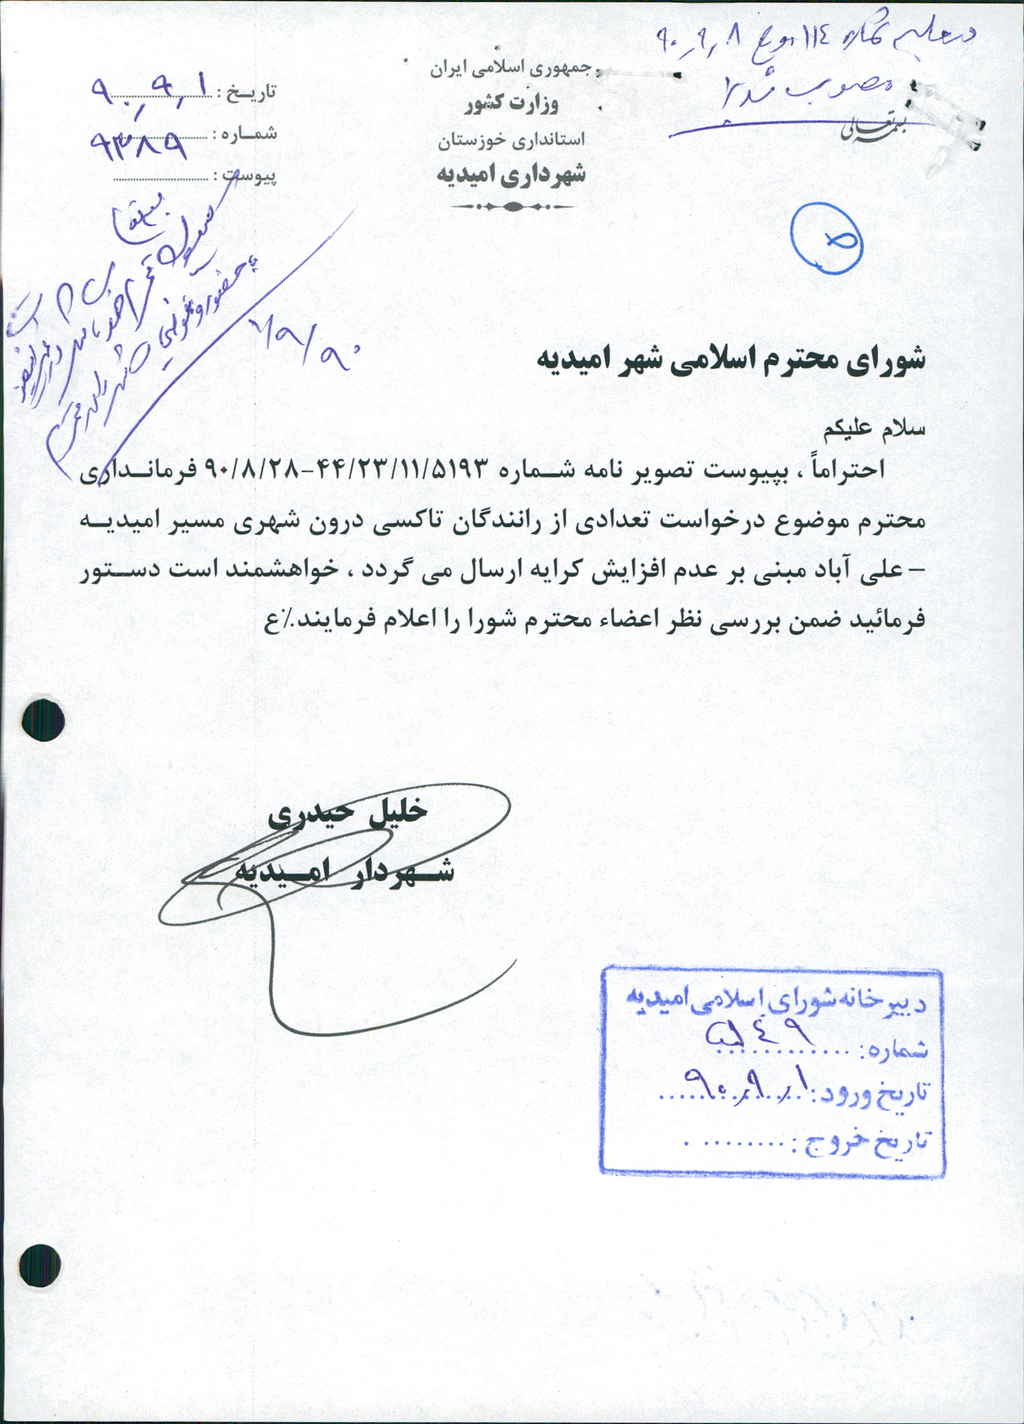 در جلسه شماره ۱۱۴ مورخ ۹۰٫۹٫۸
مصوب شد
بسمه تعالی
جمهوری اسلامی ایران
وزارت کشور
استانداری خوزستان
شهرداری امیدیه
تاریخ : ۹۰٫۹٫۱
شماره : ۹۳۸۹
پیوست :
۹۰/۹/۱
۵
شورای محترم اسلامی شهر امیدیه
سلام علیکم
احتراماً ، بپیوست تصویر نامه شماره ۴۴/۲۳/۱۱/۵۱۹۳-۹۰/۸/۲۸ فرمانداری
محترم موضوع درخواست تعدادی از رانندگان تاکسی درون شهری مسیر امیدیه
– علی آباد مبنی بر عدم افزایش کرایه ارسال می گردد ، خواهشمند است دستور
فرمائید ضمن بررسی نظر اعضاء محترم شورا را اعلام فرمایند./ع
خلیل حیدری
شهردار امیدیه
دبیرخانه شورای اسلامی امیدیه
شماره:
تاریخ ورود: ۹۰٫۹٫۱
تاریخ خروج: